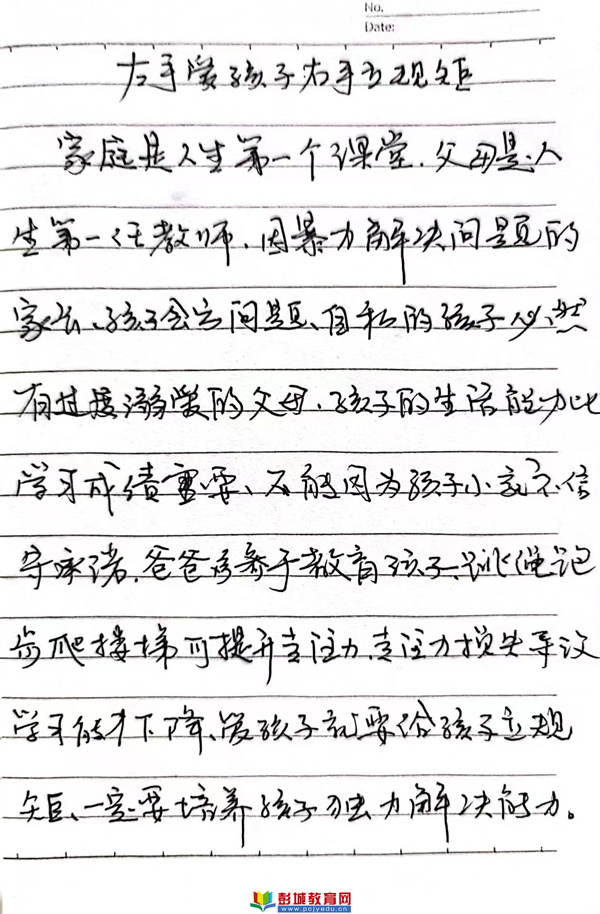 No.
Date:
左手爱孩子右手立规矩
家庭是人生第一个课堂，父母是人
生第一任教师，因暴力解决问题的
家长、孩子会出问题、自私的孩子必然
有过度溺爱的父母，孩子的生活能力比
学习成绩重要、不能因为孩子小就不信
守承诺，爸爸多参于教育孩子，跳绳跑
步爬楼梯可提升专注力，专注力损失导致
学习能力下降、爱孩子就要给孩子立规
矩、一定要培养孩子独力解决能力。
彭城教育网
www.pcjyedu.cn